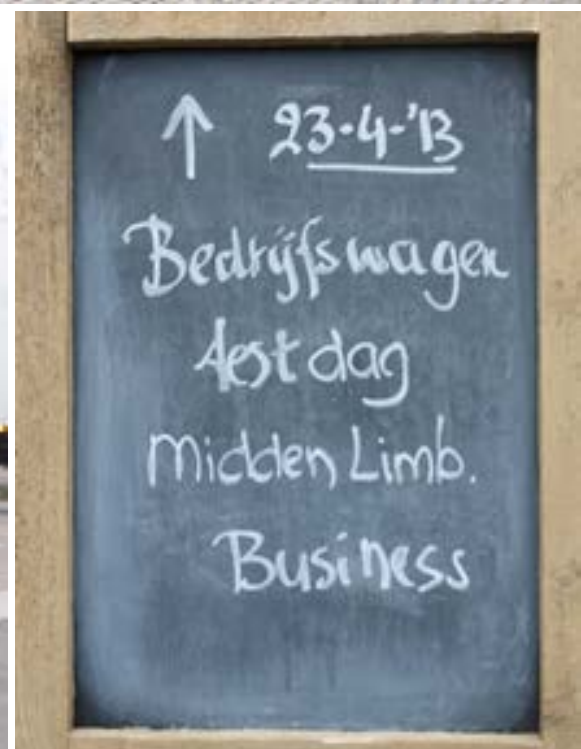 ↑ 23-4-'13
Bedrijfswagen
testdag
Midden Limb.
Business